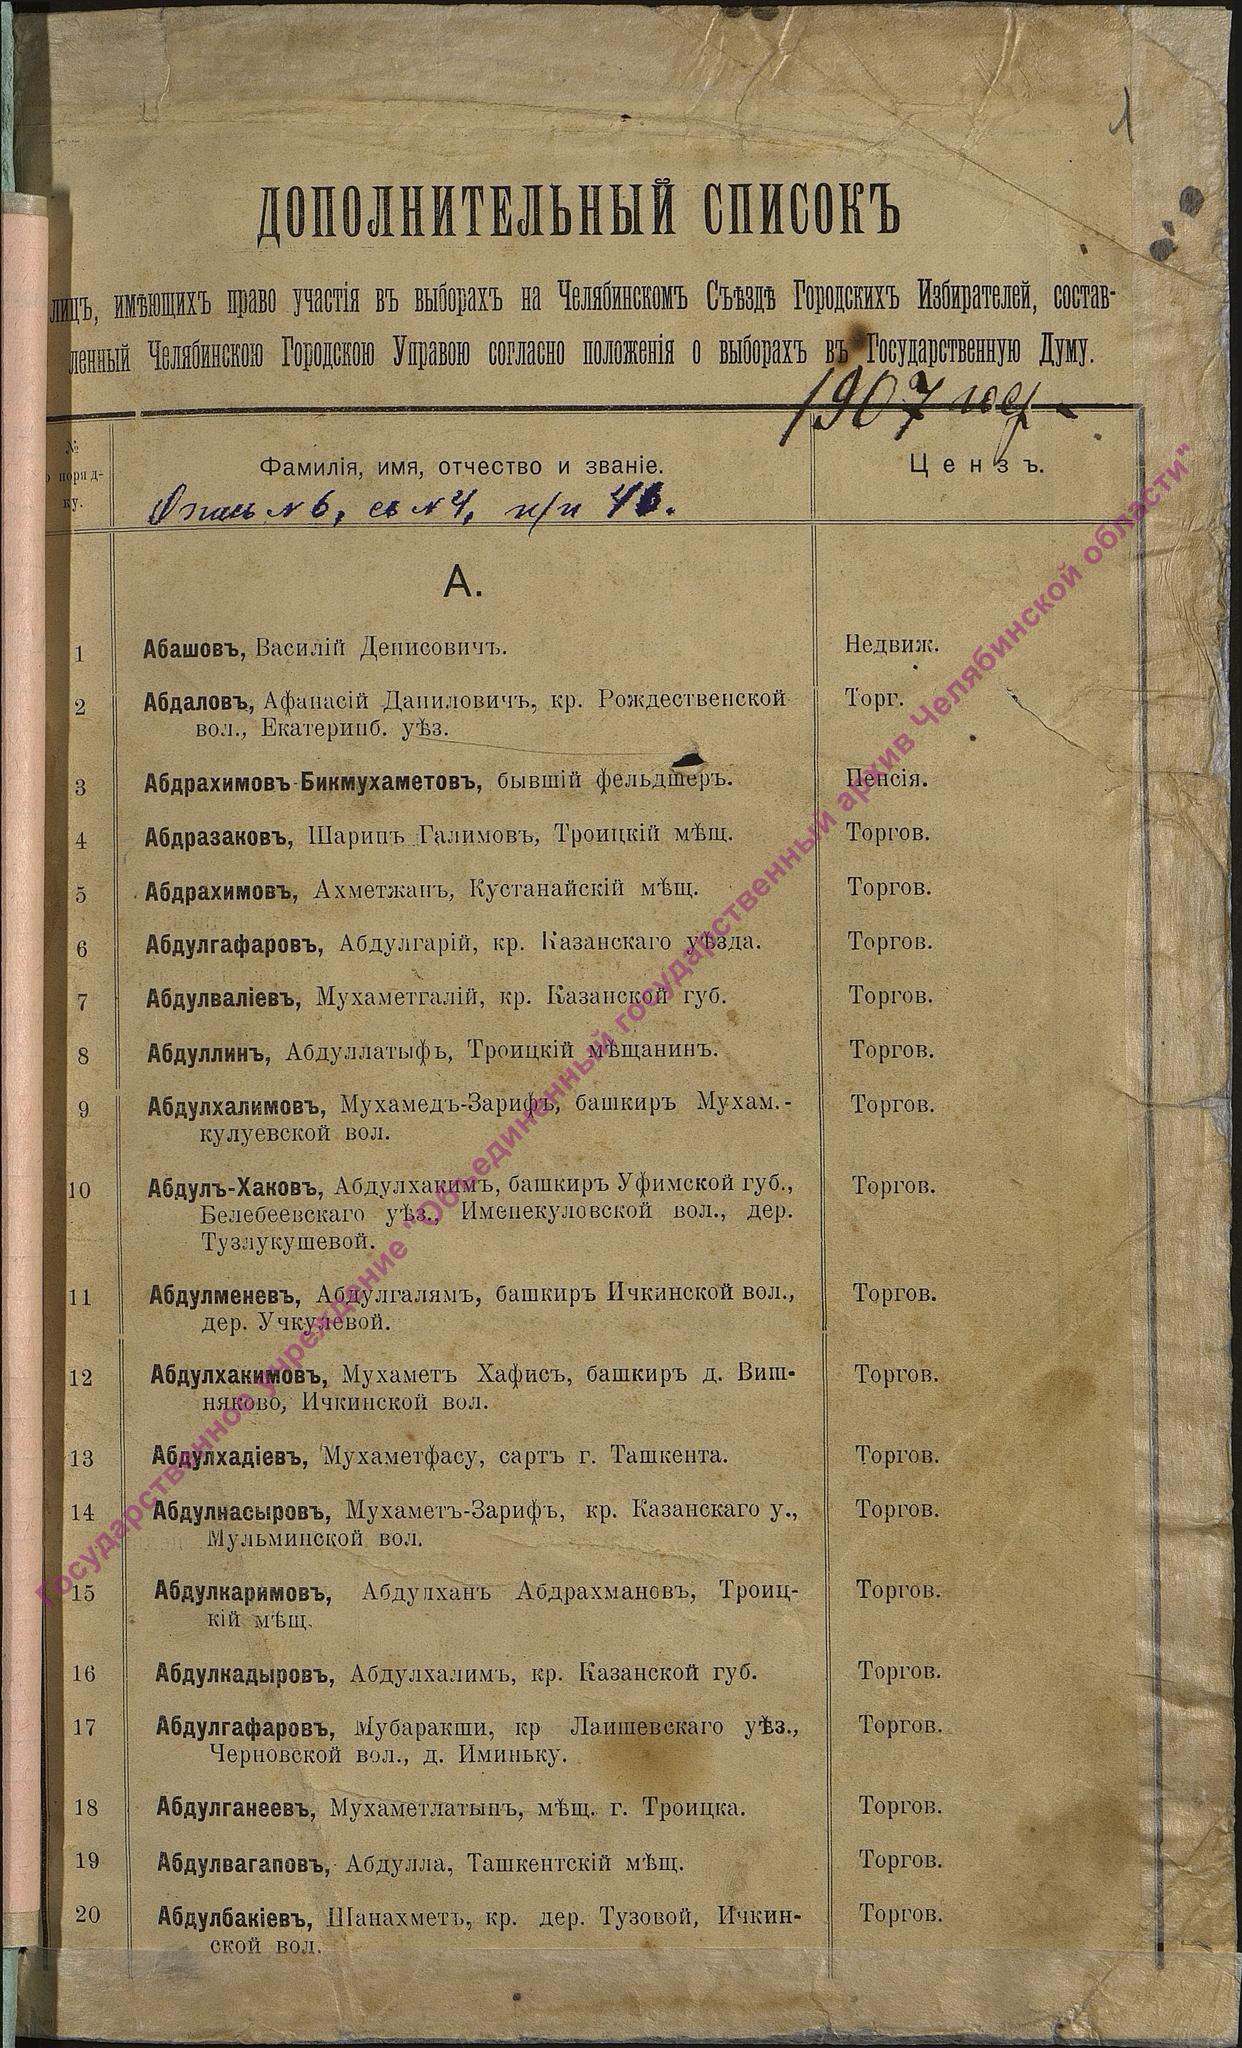 1
ДОПОЛНИТЕЛЬНЫЙ СПИСОКЪ
лицъ, имѣющихъ право участія въ выборахъ на Челябинскомъ Съѣздѣ Городскихъ Избирателей, состав-
ленный Челябинскою Городскою Управою согласно положенія о выборахъ въ Государственную Думу.
1907 год
№ о поряд-ку. Фамилія, имя, отчество и званіе. Цензъ.
Опись №6, св №4, п/п
А.
1 Абашовъ, Василій Денисовичъ. Недвиж.
2 Абдаловъ, Афанасій Даниловичъ, кр. Рождественской Торг.
вол., Екатеринб. уѣз.
3 Абдрахимовъ-Бикмухаметовъ, бывшій фельдшеръ. Пенсія.
4 Абдразаковъ, Шарипъ Галимовъ, Троицкій мѣщ. Торгов.
5 Абдрахимовъ, Ахметжанъ, Кустанайскій мѣщ. Торгов.
6 Абдулгафаровъ, Абдулгарій, кр. Казанскаго уѣзда. Торгов.
7 Абдулваліевъ, Мухаметгалій, кр. Казанской губ. Торгов.
8 Абдуллинъ, Абдуллатыфъ, Троицкій мѣщанинъ. Торгов.
9 Абдулхалимовъ, Мухамедъ-Зарифъ, башкиръ Мухам.- Торгов.
кулуевской вол.
10 Абдулъ-Хаковъ, Абдулхакимъ, башкиръ Уфимской губ., Торгов.
Белебеевскаго уѣз., Именекуловской вол., дер.
Тузлукушевой.
11 Абдулменевъ, Абдулгалямъ, башкиръ Ичкинской вол., Торгов.
дер. Учкулевой.
12 Абдулхакимовъ, Мухаметъ Хафисъ, башкиръ д. Виш- Торгов.
няково, Ичкинской вол.
13 Абдулхадіевъ, Мухаметфасу, сартъ г. Ташкента. Торгов.
14 Абдулнасыровъ, Мухаметъ-Зарифъ, кр. Казанскаго у., Торгов.
Мульминской вол.
15 Абдулкаримовъ, Абдулханъ Абдрахмановъ, Троиц- Торгов.
кій мѣщ.
16 Абдулкадыровъ, Абдулхалимъ, кр. Казанской губ. Торгов.
17 Абдулгафаровъ, Мубаракши, кр Лаишевскаго уѣз., Торгов.
Черновской вол., д. Иминьку.
18 Абдулганеевъ, Мухаметлатыпъ, мѣщ. г. Троицка. Торгов.
19 Абдулвагаповъ, Абдулла, Ташкентскій мѣщ. Торгов.
20 Абдулбакіевъ, Шанахметъ, кр. дер. Тузовой, Ичкин- Торгов.
ской вол.
Государственное учреждение "Объединенный государственный архив Челябинской области"